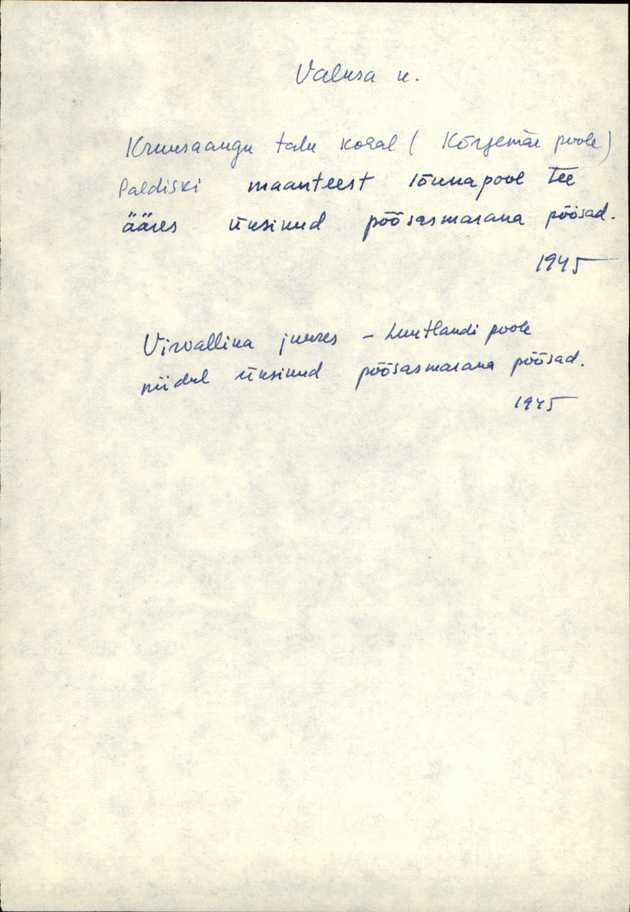 Valusa k.
Kruusaaugu talu kohal ( Kõrgemäe poole)
Paldiski maanteest lõunapool Tee
ääres üksikud põõsasmarana põõsad.
1945
juures - Luutlandi poole
niidul üksikud põõsasmarana põõsad.
1945